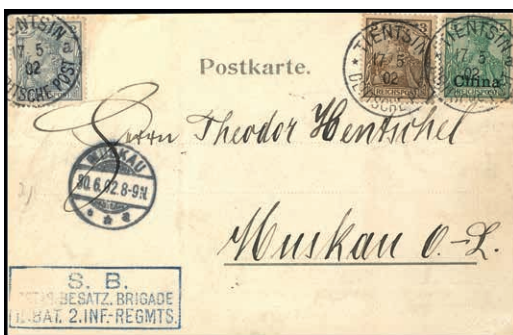 TIENTSIN
17.5
02
a
DEUTSCHE POST
TIENTSIN
17.5
02
DEUTSCHE
3
REICHSPOST
TIENTSIN
17.5
02
China
REICHSPOST
Postkarte.
Herrn Theodor Hentschel
MUSKAU
30.6.02.8-9N.
a
Muskau O.-L.
S. B.
BESATZ. BRIGADE
BAT. 2.INF.-REGMTS.